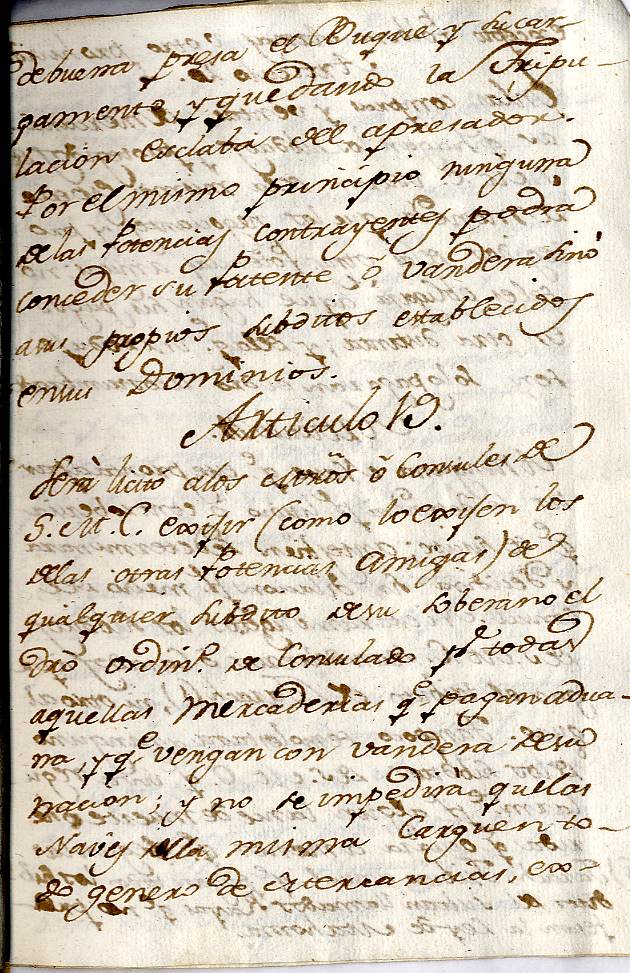 debuena presa el Buque y su car-
gamento, y quedando la Tripu-
lacion Esclaba del apresador.
Por el mismo principio ninguna
de las Potencias contrayentes podrà
conceder su Patente ô vandera sinò
asus propios subditos establecidos
ensus Dominios.
Articulo 19.
Serà licito alos Mtrôs ô Consules de
S. M. C. exijir (como lo exijen los
delas otras Potencias Amigas) de
qualquier subdito desu soberano el
dr̃o ordin.º de Consulado p.r todas
aquellas Mercaderias q.e pagan adua-
na, y q.e vengan con vandera desu
nacion; y no se impedirà quelas
Naves della misma Carguen to-
do genero de Mercancias, ex-